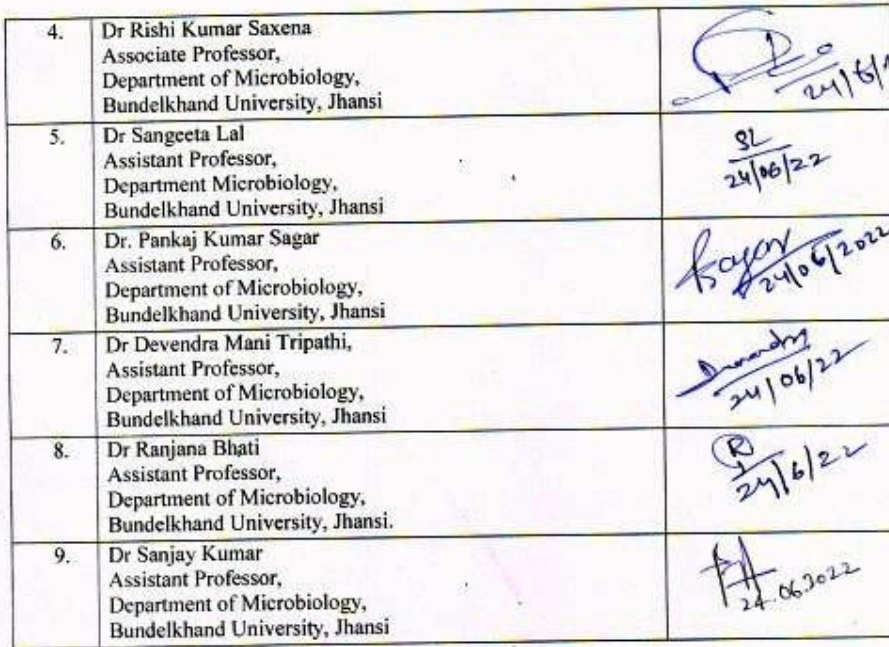 4.
Dr Rishi Kumar Saxena
Associate Professor,
Department of Microbiology,
Bundelkhand University, Jhansi
24/6/
5.
Dr Sangeeta Lal
Assistant Professor,
Department Microbiology,
Bundelkhand University, Jhansi
SL
24/06/22
6.
Dr. Pankaj Kumar Sagar
Assistant Professor,
Department of Microbiology,
Bundelkhand University, Jhansi
Sagar
24/06/2022
7.
Dr Devendra Mani Tripathi,
Assistant Professor,
Department of Microbiology,
Bundelkhand University, Jhansi
24/06/22
8.
Dr Ranjana Bhati
Assistant Professor,
Department of Microbiology,
Bundelkhand University, Jhansi.
R
24/6/22
9.
Dr Sanjay Kumar
Assistant Professor,
Department of Microbiology,
Bundelkhand University, Jhansi
24.06.2022